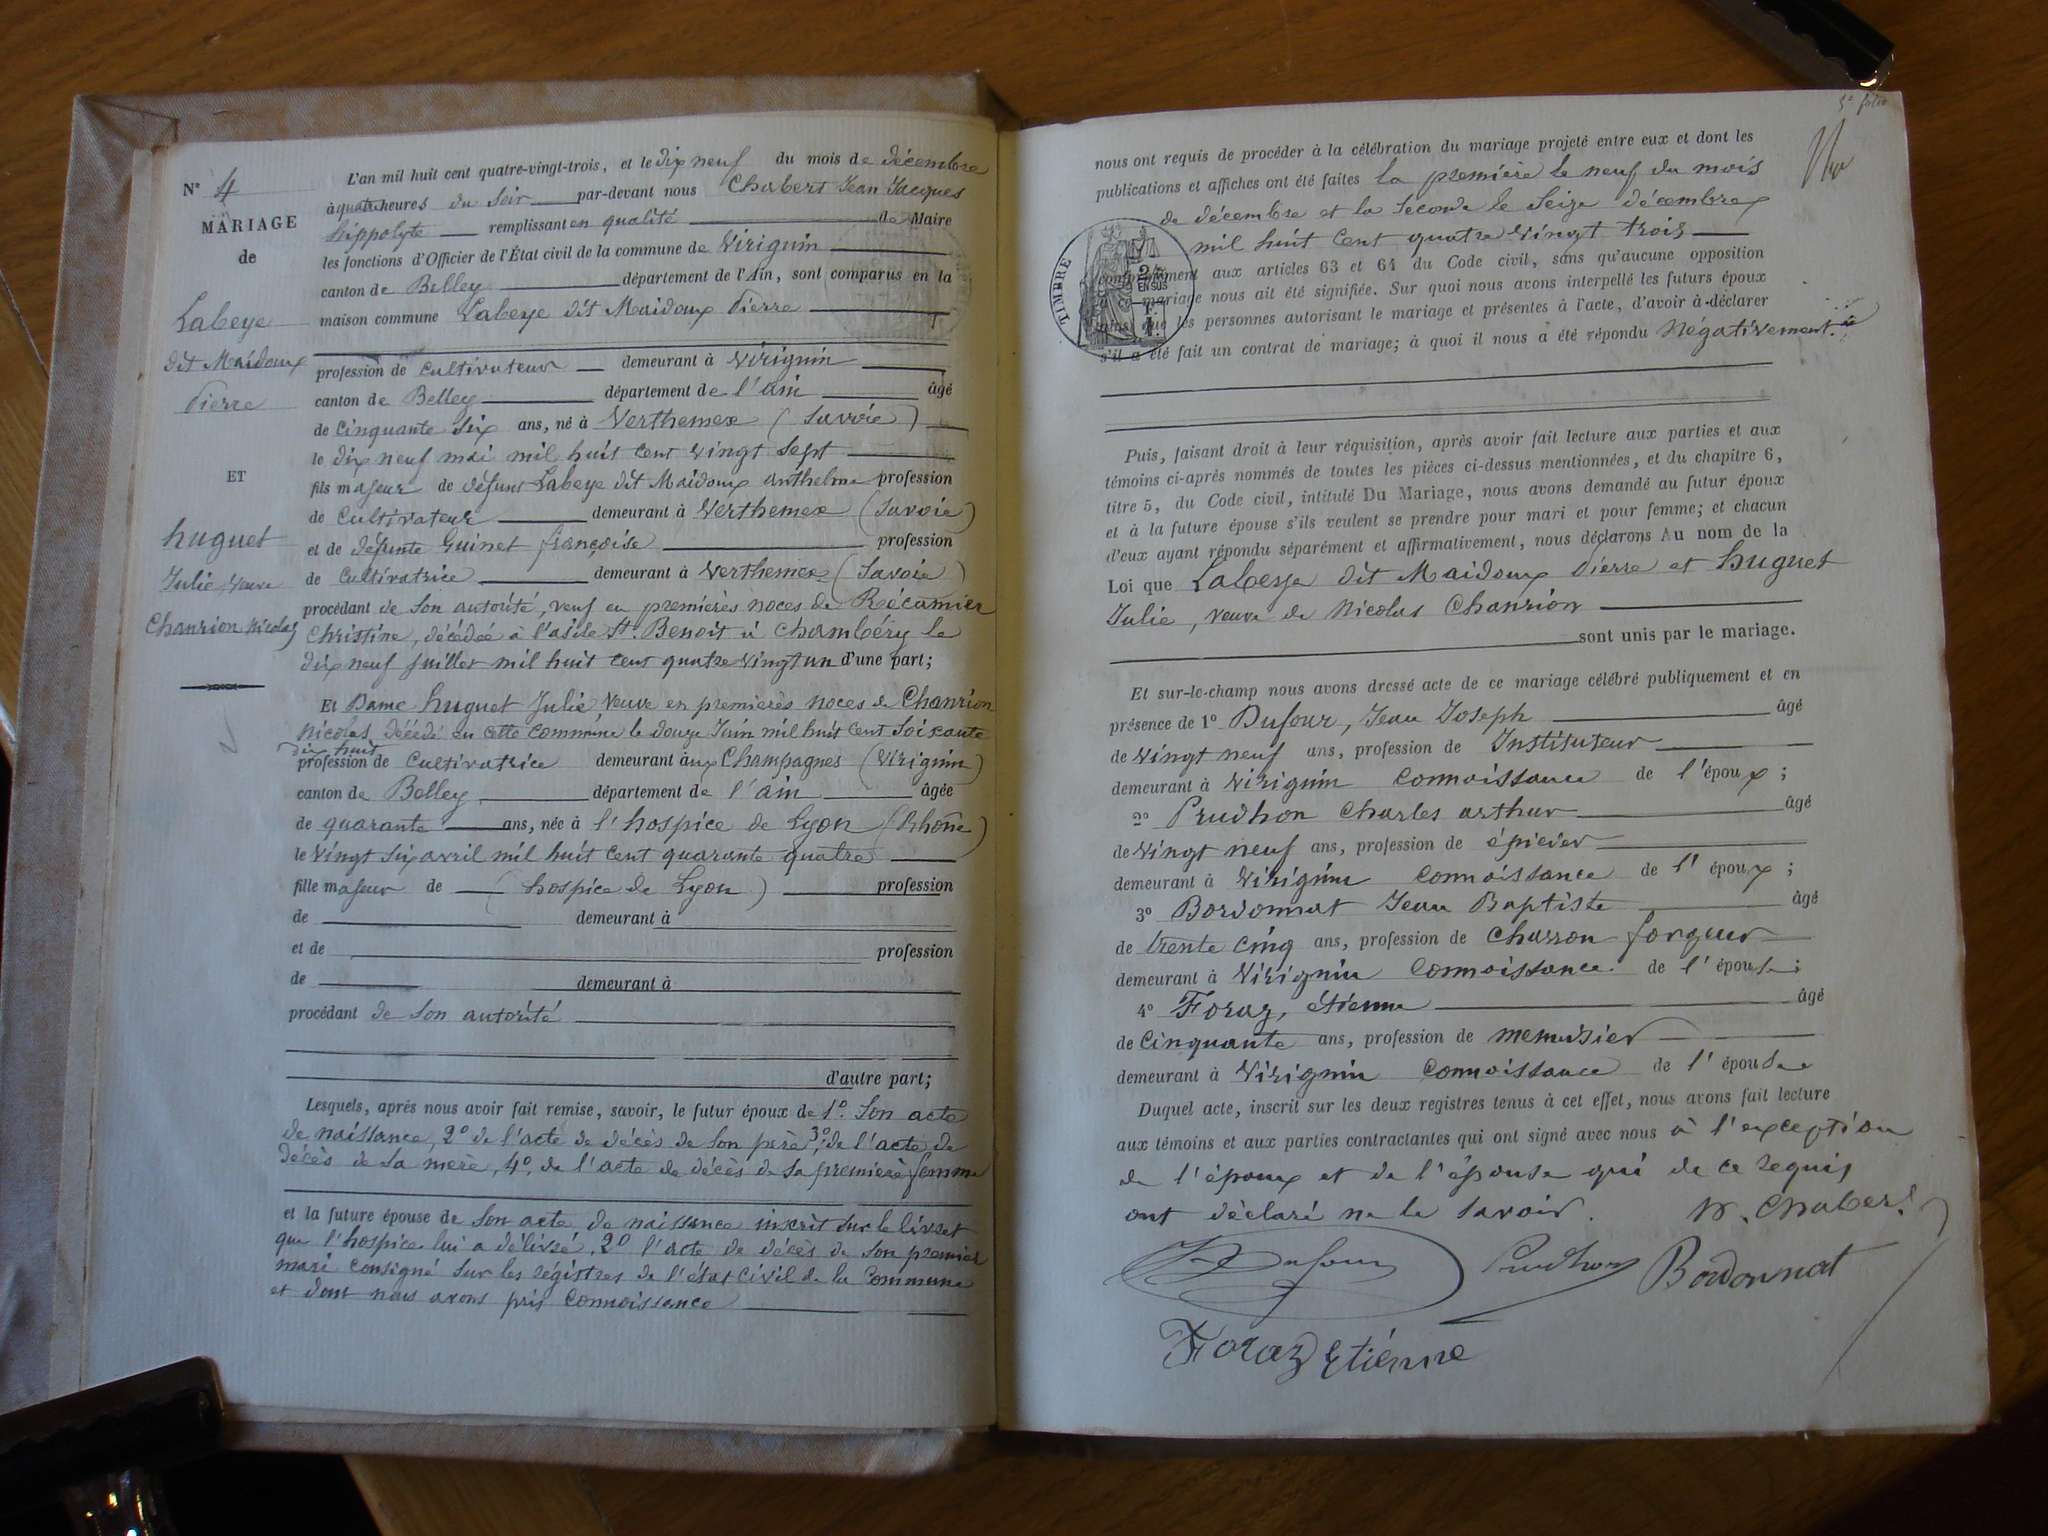 N° 4
MARIAGE
de
Labeye
dit Maidoux
Pierre
ET
huguet
Julie, veuve
Chanrion Nicolas
L'an mil huit cent quatre-vingt-trois, et le dix neuf du mois de décembre
à quatre heures du soir par-devant nous Chabert Jean Jacques
hippolyte remplissant en qualité de Maire
les fonctions d'Officier de l'État civil de la commune de Virignin
canton de Belley département de l'Ain, sont comparus en la
maison commune Labeye dit Maidoux Pierre
profession de cultivateur demeurant à Virignin
canton de Belley département de l'ain âgé
de cinquante six ans, né à Verthemex (Savoie)
le dix neuf mai mil huit cent vingt sept
fils majeur de défunt Labeye dit Maidoux anthelme profession
de cultivateur demeurant à Verthemex (Savoie)
et de défunte Guinet françoise profession
de cultivatrice demeurant à Verthemex (Savoie)
procédant de son autorité, veuf en premières noces de Récamier
Christine, décédée à l'asile St. Benoit à Chambéry le
dix neuf juillet mil huit cent quatre vingt un d'une part;
Et Dame huguet Julie veuve en premières noces de Chanrion
Nicolas décédé en cette commune le douze Juin mil huit cent soixante
dix huit
profession de cultivatrice demeurant aux Champagnes (Virignin)
canton de Belley département de l'ain âgée
de quarante ans, née à l'hospice de Lyon (Rhône)
le vingt six avril mil huit cent quarante quatre
fille majeur de (hospice de Lyon) profession
de demeurant à
et de profession
de demeurant à
procédant de son autorité
d'autre part;
Lesquels, après nous avoir fait remise, savoir, le futur époux de 1°. son acte
de naissance, 2° de l'acte de décès de son père, 3°, de l'acte de
décès de sa mère, 4°, de l'acte de décès de sa première femme
et la future épouse de son acte de naissance inscrit sur le livret
que l'hospice lui a délivré, 2° l'acte de décès de son premier
mari consigné sur les régistres de l'état civil de la commune
et dont nous avons pris connaissance
5e folio
nous ont requis de procéder à la célébration du mariage projeté entre eux et dont les
publications et affiches ont été faites la première le neuf du mois
de décembre et la seconde le seize décembre
mil huit cent quatre vingt trois
TIMBRE
2/10
EN SUS
conformément aux articles 63 et 64 du Code civil, sans qu'aucune opposition
à ce mariage nous ait été signifiée. Sur quoi nous avons interpellé les futurs époux
ainsi que les personnes autorisant le mariage et présentes à l'acte, d'avoir à déclarer
s'il a été fait un contrat de mariage; à quoi il nous a été répondu négativement.
Puis, faisant droit à leur réquisition, après avoir fait lecture aux parties et aux
témoins ci-après nommés de toutes les pièces ci-dessus mentionnées, et du chapitre 6,
titre 5, du Code civil, intitulé Du Mariage, nous avons demandé au futur époux
et à la future épouse s'ils veulent se prendre pour mari et pour femme; et chacun
d'eux ayant répondu séparément et affirmativement, nous déclarons Au nom de la
Loi que Labeye dit Maidoux Pierre et huguet
Julie, veuve de Nicolas Chanrion
sont unis par le mariage.
Et sur-le-champ nous avons dressé acte de ce mariage célébré publiquement et en
présence de 1° Dufour, Jean Joseph âgé
de vingt neuf ans, profession de Instituteur
demeurant à Virignin connaissance de l'époux;
2° Prudhon Charles arthur âgé
de vingt neuf ans, profession de épicier
demeurant à Virignin connaissance de l'époux;
3° Bordonnat Jean Baptiste âgé
de trente cinq ans, profession de charron forgeur
demeurant à Virignin connaissance de l'épouse;
4° Foraz, étienne âgé
de cinquante ans, profession de menuisier
demeurant à Virignin connaissance de l'épouse
Duquel acte, inscrit sur les deux registres tenus à cet effet, nous avons fait lecture
aux témoins et aux parties contractantes qui ont signé avec nous à l'exception
de l'époux et de l'épouse qui de ce requis
ont déclaré ne le savoir. H. Chabert
Dufour Prudhon Bordonnat
Foraz Etienne